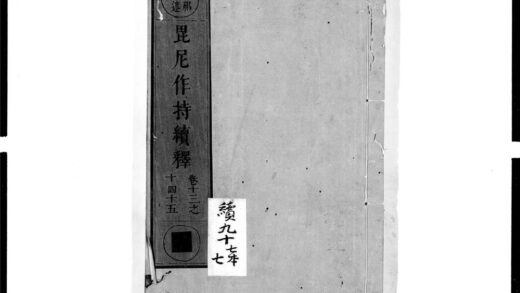 毘尼作持續釋
卷十三之
十四十五
續九十七本
七